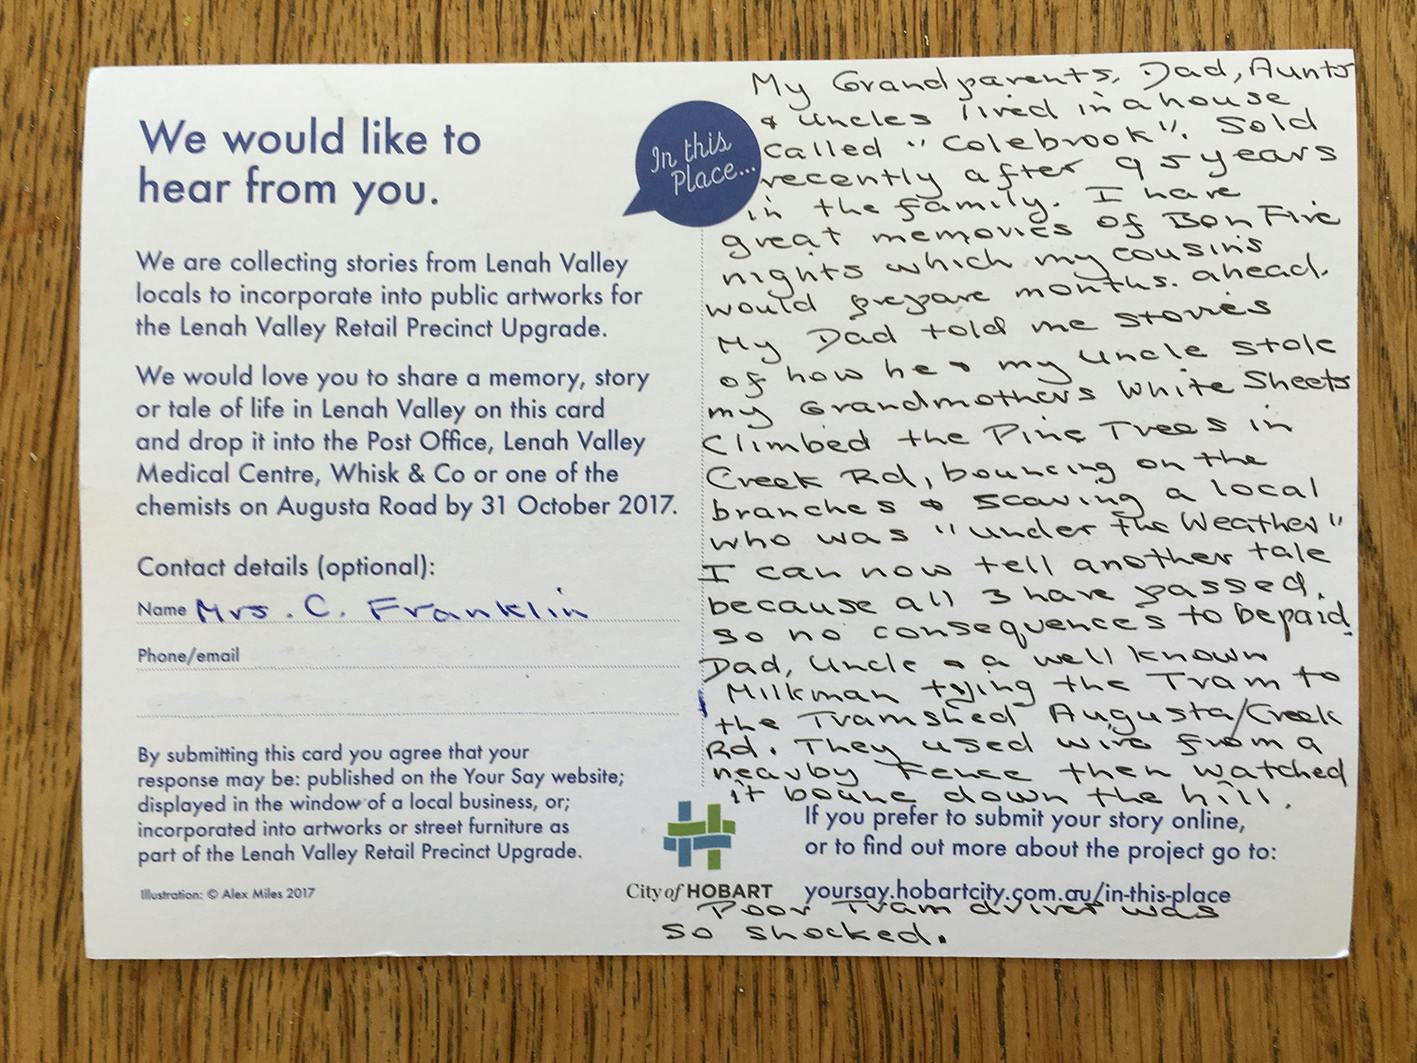 We would like to
hear from you.
In this
Place...
We are collecting stories from Lenah Valley
locals to incorporate into public artworks for
the Lenah Valley Retail Precinct Upgrade.
We would love you to share a memory, story
or tale of life in Lenah Valley on this card
and drop it into the Post Office, Lenah Valley
Medical Centre, Whisk & Co or one of the
chemists on Augusta Road by 31 October 2017.
Contact details (optional):
Name Mrs. C. Franklin
Phone/email
By submitting this card you agree that your
response may be: published on the Your Say website;
displayed in the window of a local business, or;
incorporated into artworks or street furniture as
part of the Lenah Valley Retail Precinct Upgrade.
Illustration: © Alex Miles 2017
My Grandparents, Dad, Aunts
& Uncles lived in a house
called "Colebrook". Sold
recently after 95 years
in the family. I have
great memories of Bon Fire
nights which my cousins
would prepare months. ahead.
My Dad told me stories
of how he & my Uncle stole
my Grandmothers White Sheets
Climbed the Pine Trees in
Creek Rd, bouncing on the
branches & scaring a local
who was "under the Weather"
I can now tell another tale
because all 3 have passed.
so no consequences to be paid.
Dad, Uncle & a well known
Milkman tying the Tram to
the Tramshed Augusta/Creek
Rd. They used wire from a
nearby Fence then watched
it boune down the hill.
City of HOBART
If you prefer to submit your story online,
or to find out more about the project go to:
yoursay.hobartcity.com.au/in-this-place
Poor Tram driver was
so shocked.